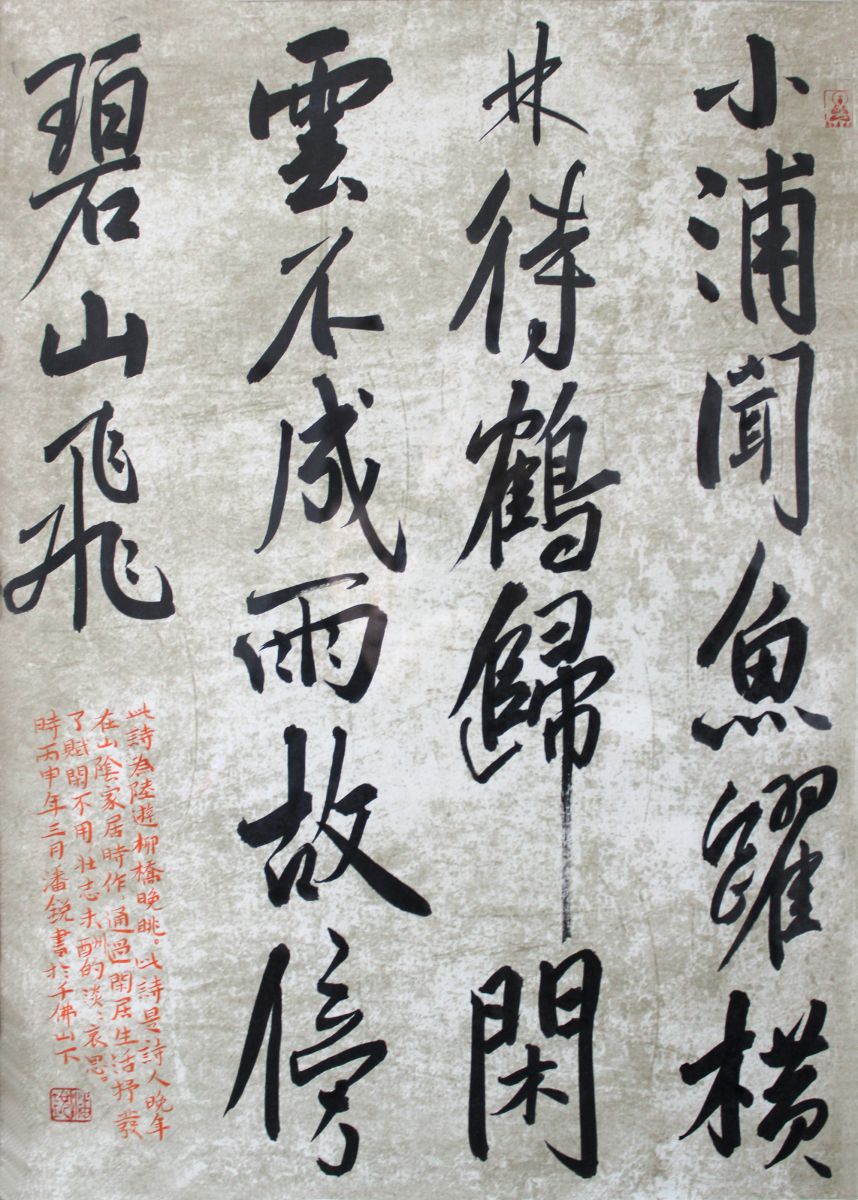 小浦聞魚躍橫
林待鶴歸閑
雲不成雨故傍
碧山飛
此詩為陸遊柳橋晚眺。此詩是詩人晚年
在山陰家居時作，通過閑居生活抒發
了賦閑不用壯志未酬的淡淡哀思。
時丙申年三月潘銳書於千佛山下